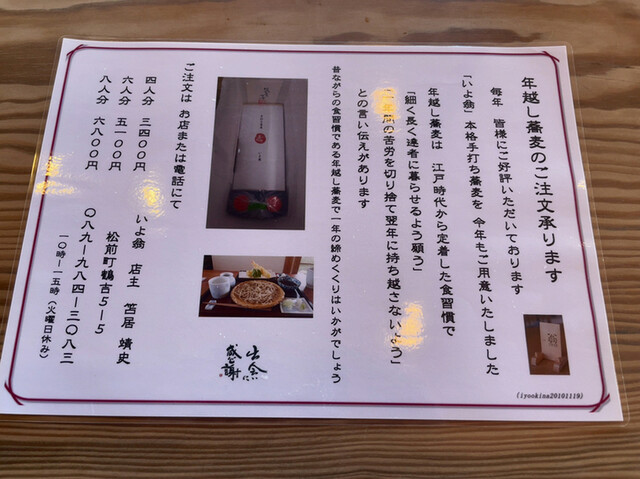 年越し蕎麦のご注文承ります
毎年　皆様にご好評いただいております
「いよ翁」本格手打ち蕎麦を 今年もご用意いたしました
年越し蕎麦は　江戸時代から定着した食習慣で
「細く長く達者に暮らせるよう願う」
年間の苦労を切り捨て翌年に持ち越さない
との言い伝えがあります
昔ながらの食習慣である年越し蕎麦で一年の締めくくりはいかがでしょう
出会いに
感謝
ご注文は お店または電話にて
四人分　三四〇〇円
六人分　五一〇〇円
八人分　六八〇〇円
いよ翁　店主　笘居　靖史
松前町鶴吉５－５
〇八九－九八四－三〇八三
一〇時－一五時（火曜日休み）
(iyookina20101119)